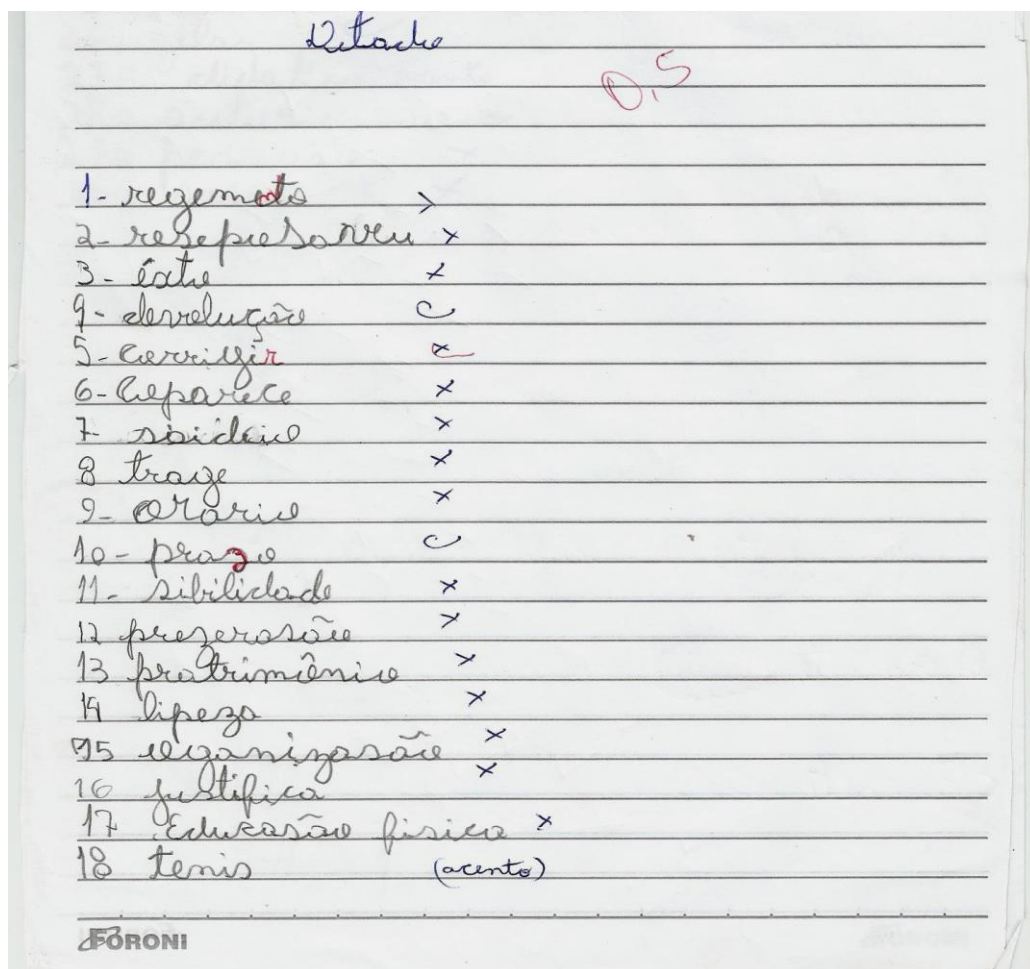 Ditado
0,5
1- regemento
2- resepiesonveu x
3- éxto x
4- devolução C
5- Corrigir x
6- Coparece x
7- soideio x
8 trage x
9- orário x
10- prazo C
11- sibilidade x
12 prezerasão x
13 pratrimônio x
14 lipeza x
15 organizasão x
16 justifica x
17 Educasão fisica x
18 tenis (acento)
FORONI